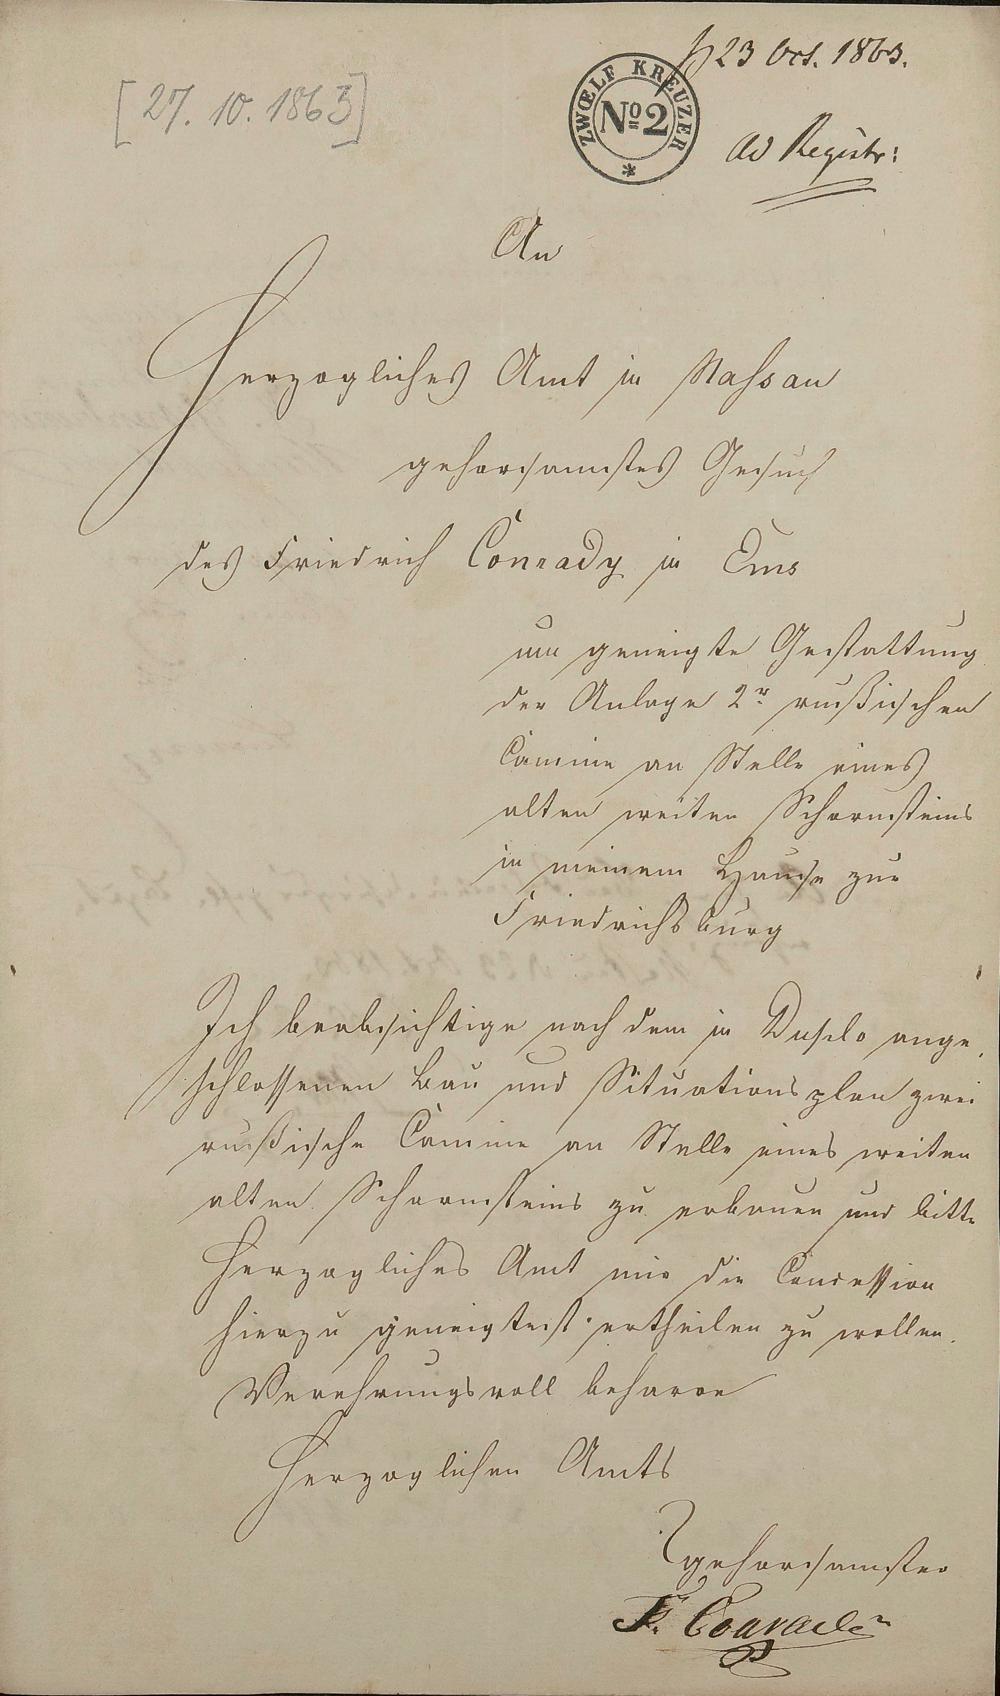 [27. 10. 1863]
ZWŒLF KREUZER
Nº 2
23 Oct. 1863.
ad Registr:
An
Herzogliches Amt in Nassau
gehorsamstes Gesuch
des Friedrich Conrady in Ems
um geneigte Gestattung
der Anlage 2r rußischen
Camine an Stelle eines
alten weiten Schornsteins
in meinem Hause zur
Friedrichsburg
Ich beabsichtige nach dem in Duplo ange
schlossenen Bau und Situationsplan zwei
rußische Camine an Stelle eines weiten
alten Schornsteins zu erbauen und bitte
Herzogliches Amt mir die Concession
hierzu geneigtest ertheilen zu wollen.
Verehrungsvoll beharre
Herzoglichen Amts
gehorsamster
F. Conrady